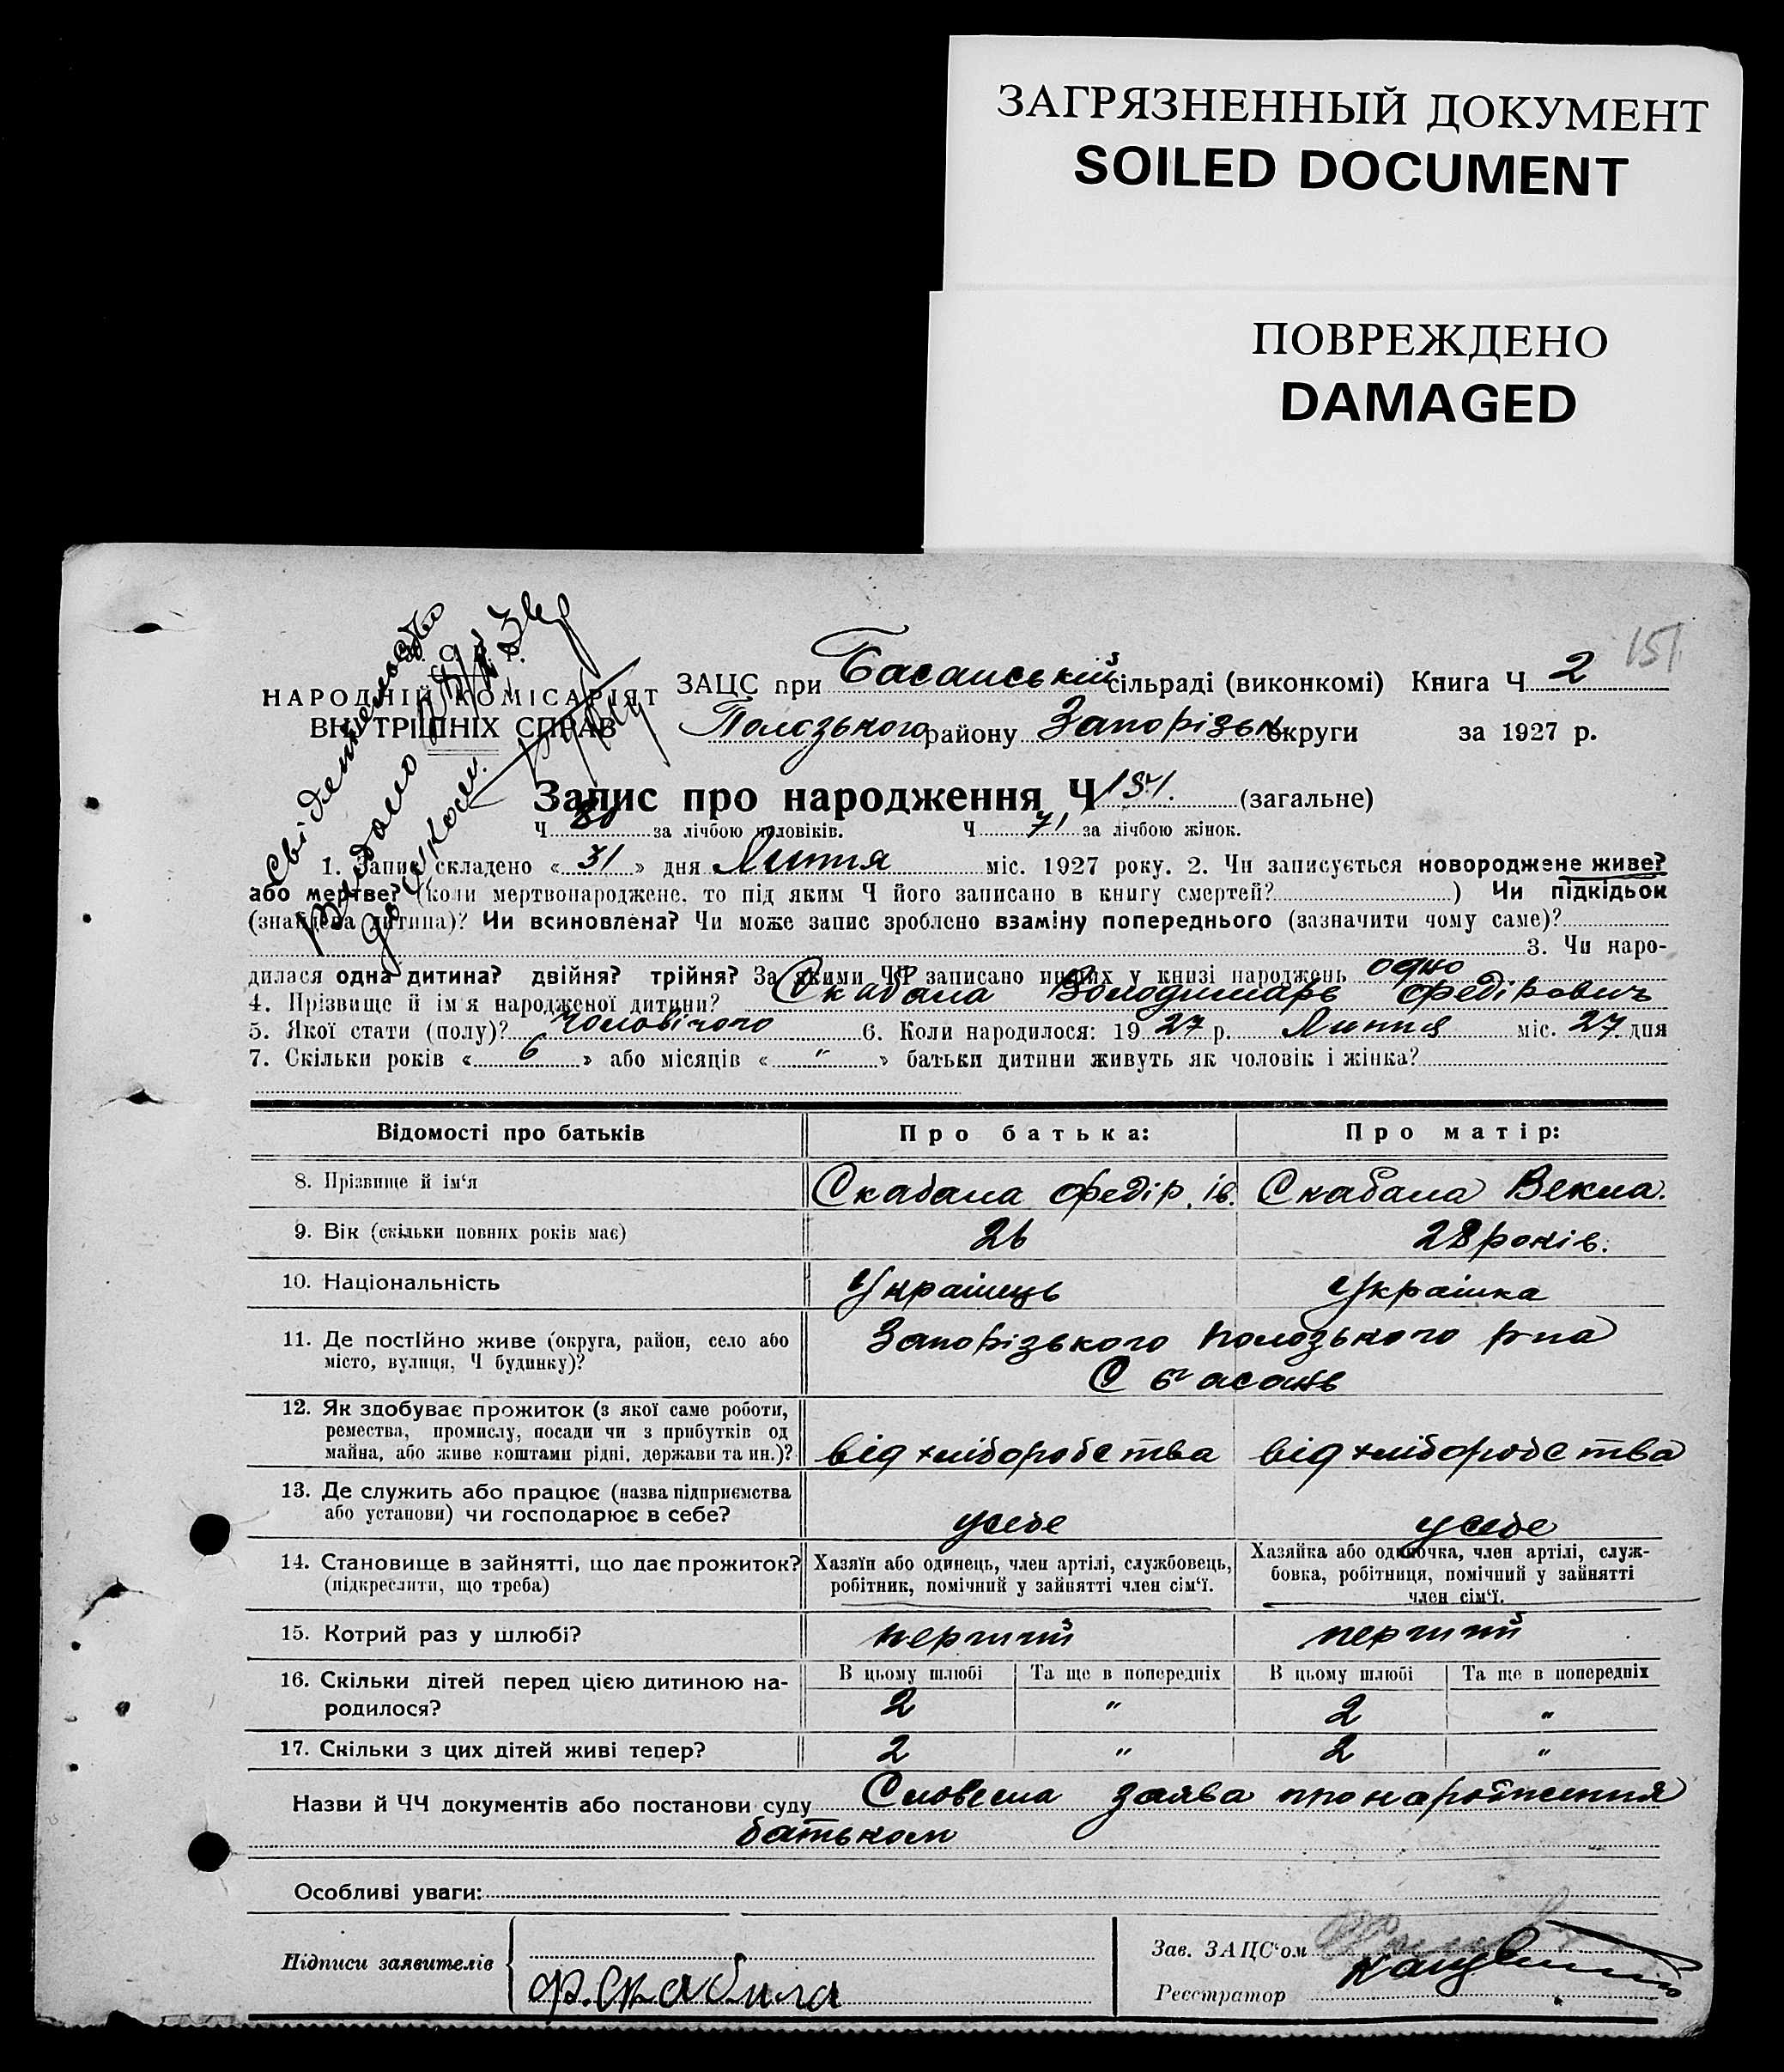 ЗАГРЯЗНЕННЫЙ ДОКУМЕНТ
SOILED DOCUMENT
ПОВРЕЖДЕНО
DAMAGED
151
НАРОДНІЙ КОМІСАРІЯТ
ВНУТРІШНІХ СПРАВ
Свідетельство
ЗАЦС при Басанській сільраді (виконкомі) Книга Ч 2
Полозького району Запорізьк округи за 1927 р.
Запис про народження Ч 151. (загальне)
Ч 80 за лічбою чоловіків. Ч 71 за лічбою жінок.
1. Запис складено « 31 » дня Липня міс. 1927 року. 2. Чи записується новороджене живе?
або мертве? (коли мертвонароджене, то під яким Ч його записано в книгу смертей? ) Чи підкідьок
(знайдена дитина)? Чи всиновлена? Чи може запис зроблено взаміну попереднього (зазначити чому саме)?
3. Чи наро-
дилася одна дитина? двійня? трійня? За якими ЧЧ записано инших у книзі народжень одно
4. Прізвище й ім'я народженої дитини? Скабала Володимарь Федірович
5. Якої стати (полу)? чоловічого 6. Коли народилося: 19 27 р. Липня міс. 27 дня
7. Скільки років « 6 » або місяців « " » батьки дитини живуть як чоловік і жінка?
Відомості про батьків Про батька: Про матір:
8. Прізвище й ім'я Скабала Федір. Ів. Скабала Векла.
9. Вік (скільки повних років має) 26 28 років.
10. Національність Українець Українка
11. Де постійно живе (округа, район, село або
місто, вулиця, Ч будинку)? Запорізького Полозького р-на
С Басань
12. Як здобуває прожиток (з якої саме роботи,
ремества, промислу, посади чи з прибутків од
майна, або живе коштами рідні, держави та ин.)? від хліборобства від хліборобства
13. Де служить або працює (назва підприємства
або установи) чи господарює в себе? усебе усебе
14. Становище в зайнятті, що дає прожиток?
(підкреслити, що треба)
Хазяїн або одинець, член артілі, службовець,
робітник, помічний у зайнятті член сім'ї.
Хазяйка або одиночка, член артілі, служ-
бовка, робітниця, помічний у зайнятті
член сім'ї.
15. Котрий раз у шлюбі? перший перший
16. Скільки дітей перед цією дитиною на-
родилося?
В цьому шлюбі Та ще в попередніх В цьому шлюбі Та ще в попередніх
2 " 2 "
17. Скільки з цих дітей живі тепер? 2 " 2 "
Назви й ЧЧ документів або постанови суду Словесна заява про народження
батьком
Особливі уваги:
Підписи заявителів
Ф. Скабила
Зав. ЗАЦС'ом
Реєстратор